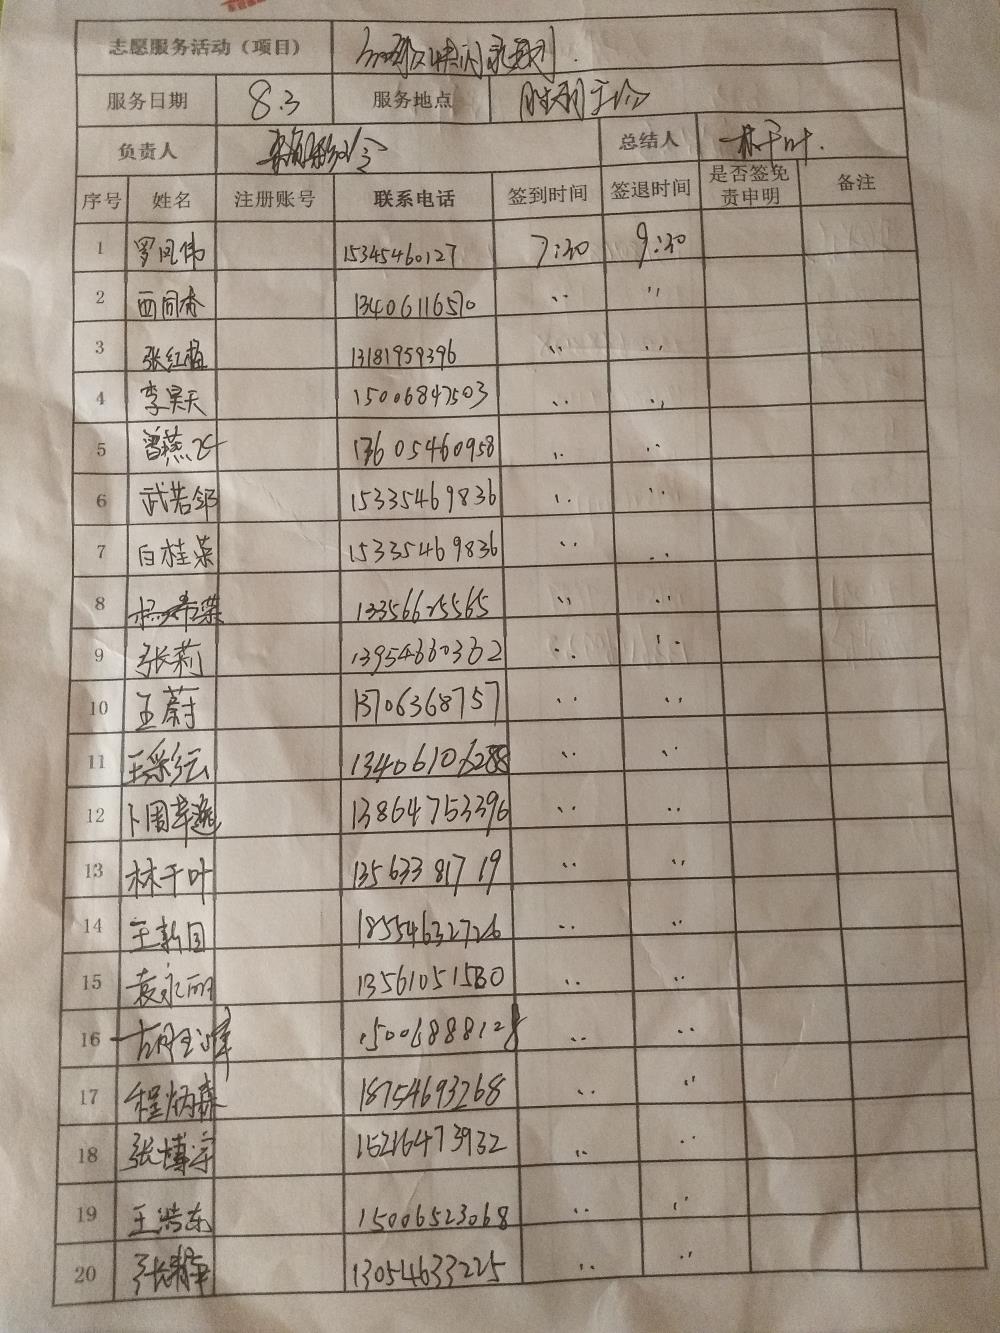 志愿服务活动（项目）
服务日期 8.3 服务地点
负责人 总结人 林千叶.
序号 姓名 注册账号 联系电话 签到时间 签退时间 是否签免责申明 备注
1 罗凤伟 15345460127 7:30 9:30
2 西同春 13406116570 〃 〃
3 张红梅 13181959396 〃 〃
4 李昊天 15006847503 〃 〃
5 曾燕飞 13605460958 〃 〃
6 武若邻 15335469836 〃 〃
7 白桂荣 15335469836 〃 〃
8 13356625565 〃 〃
9 张莉 13954660362 〃 〃
10 王蔚 13706368757 〃 〃
11 王彩云 13406106288 〃 〃
12 13864753396 〃 〃
13 林千叶 13563381719 〃 〃
14 王新国 18554632726 〃 〃
15 袁永丽 〃 〃
16 15006888128 〃 〃
17 程炳森 18754693268 〃 〃
18 张博宇 15216473932 〃 〃
19 王浩东 15006523068 〃 〃
20 张静 13054633225 〃 〃